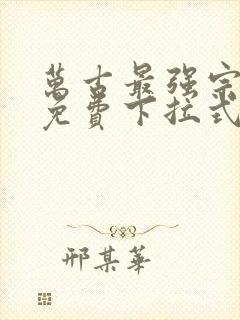 萬古最强宗
免費下拉式
邢某華